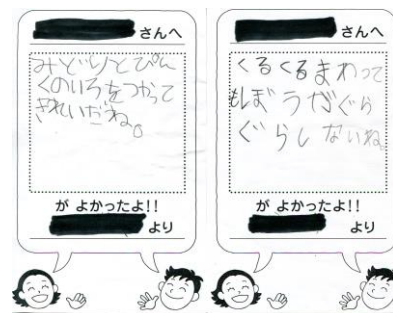 さんへ
みどりとぴん
くのいろをつかって
きれいだね。
が よかったよ!!
より
さんへ
くるくるまわって
もしぼうがぐら
ぐらしないね
が よかったよ!!
より